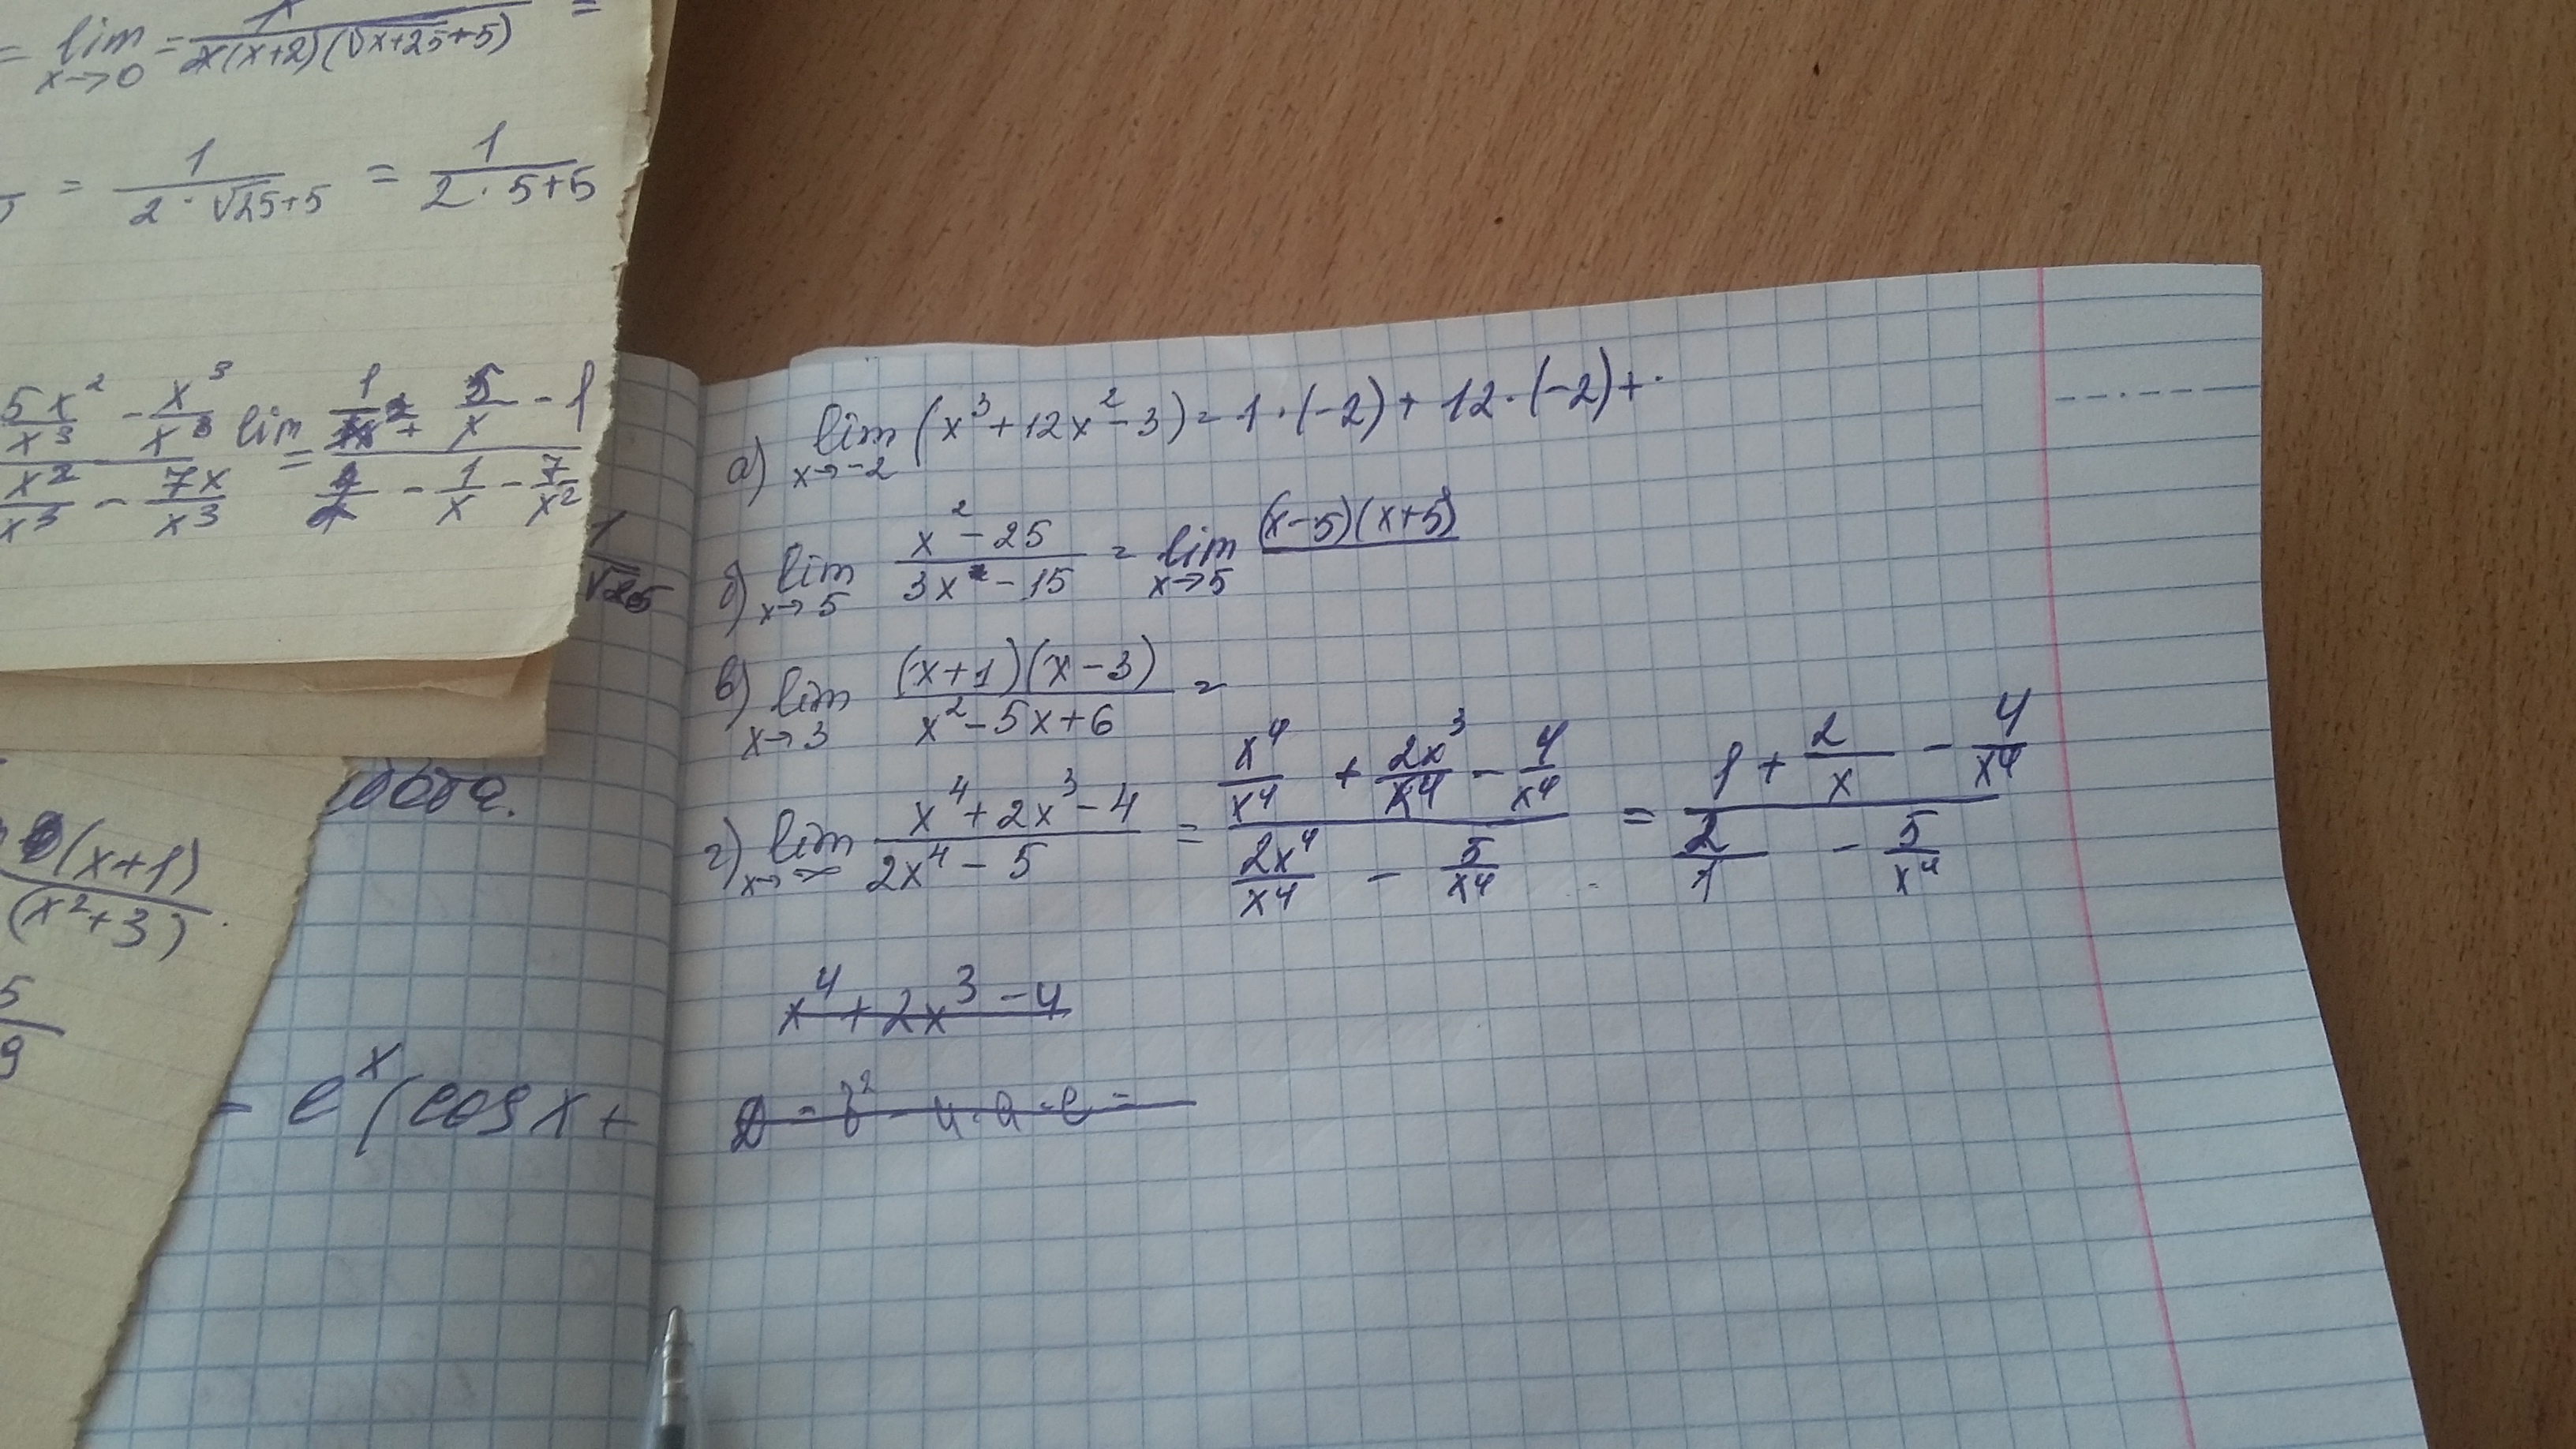 = lim x→0 = x / x(x+2)(√x+25+5) =
= 1 / 2·√25+5 = 1 / 2·5+5
5x² / x³ - x³ / x³
x² / x³ - 7x / x³
lim = 5 / x - 1
- 1 / x - 7 / x²
1 / √25
(x+1) / (x²+3)
5 / 9
e^x (cos x +
а) lim x→-2 (x³+12x²-3) = 1·(-2) + 12·(-2)+·
б) lim x→5 x²-25 / 3x -15 = lim x→5 (x-5)(x+5)
в) lim x→3 (x+1)(x-3) / x²-5x+6 =
г) lim x→∞ x⁴+2x³-4 / 2x⁴-5 = x⁴/x⁴ + 2x³/x⁴ - 4/x⁴ / 2x⁴/x⁴ - 5/x⁴ = 1 + 2/x - 4/x⁴ / 2/1 - 5/x⁴
x⁴+2x³-4
D = b² - 4·a·c =